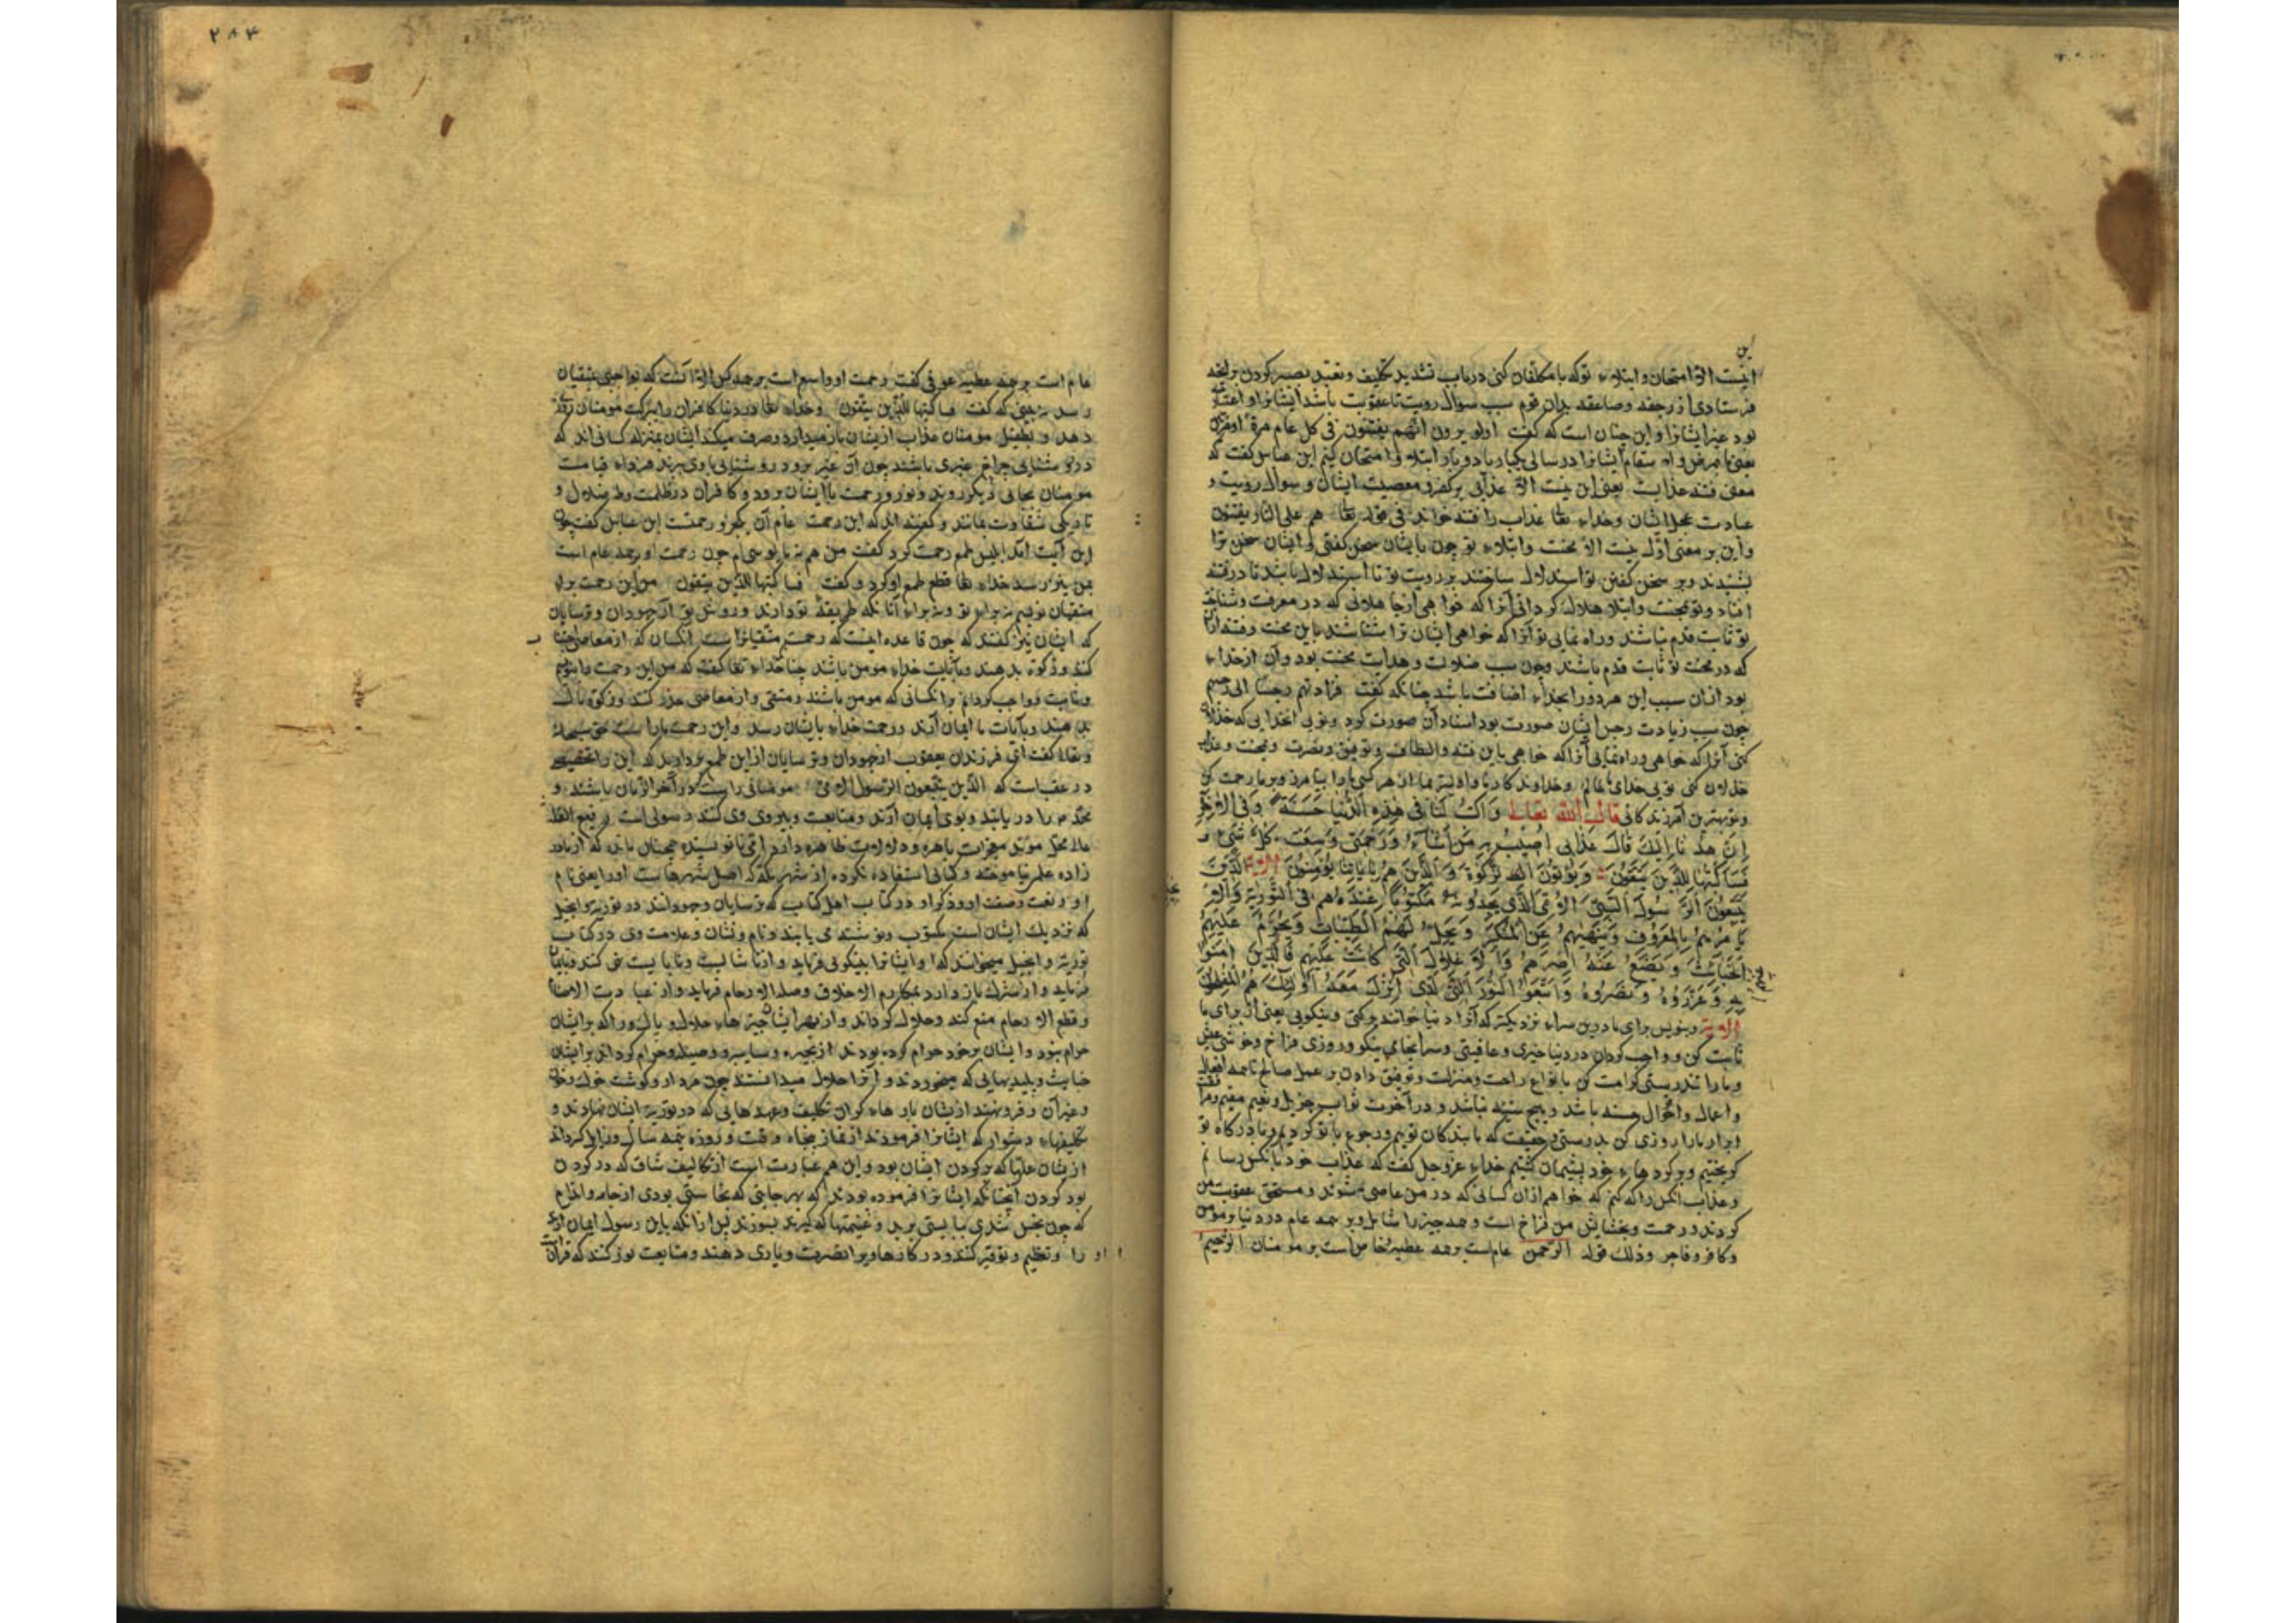 این
نیست الا امتحان و ابتلاء تو که با مکلفان کنی در باب تشدید تکلیف و تعبد بصبر کردن بر آنچه
فرستادی از رجفه و صاعقه بدان قوم سبب سوال رویت تا عقوبت باشد ایشانرا و اعتبار
بود غیر ایشانرا و این چنان است که گفت اولو یرون انهم یفتنون فی کل عام مرة او مرتین
یعنی بامراض و اسقام ایشانرا در سالی یکبار یا دو بار ابتلاء و امتحان کنیم ابن عباس گفت که
معنی فتنه عذابست یعنی این نیست الا عذابی بر کفر و معصیت ایشان و سوال رویت و
عبادت عجل ایشان و خداء تعا عذاب را فتنه خواند فی قوله تعا هم علی النار یفتنون
و این بر معنی اول نیست الا محنت و ابتلاء تو چون با ایشان سخن گفتی و ایشان سخن ترا
بشنیدند و بر سخن گفتن تو استدلال ساختند بر رویت تو تا استدلال باشد تا در فتنه
افتاد و تو بمحنت و ابتلا هلاک گردانی آنرا که خواهی از جاهلانی که در معرفت و شناخت
تو ثابت قدم نباشند و راه نمایی تو آنرا که خواهی ایشان ترا شناسند باین محنت و فتنه
که در محنت تو ثابت قدم باشند و چون سبب ضلالت و هدایت محنت بود و آن از خداء
بود ازان سبب این هر دو را بخداء اضافت باشد چنانکه گفت فزادتهم رجسا الی رجسهم
چون سبب زیادت رجس ایشان صورت بود اسناد آن صورت کرد و تویی آنخدایی که خذلان
کنی آنرا که خواهی و راه نمایی آنرا که خواهی باین فتنه و الطاف و توفیق و نصرت و محنت و
خذلان کنی تویی خدای عالم و خداوند کار ما و اولیتر بما از هر کسی ما را بیامرز و بر ما رحمت کن
و تو بهترین آمرزندگانی قال الله تعالی وَاكْتُبْ لَنَا فِی هٰذِهِ الدُّنْیَا حَسَنَةً وَفِی الْاٰخِرَةِ
اِنَّا هُدْنَا اِلَیْكَ قَالَ عَذَابِی اُصِیبُ بِهِ مَنْ اَشَاءُ وَرَحْمَتِی وَسِعَتْ كُلَّ شَیْءٍ
فَسَاَكْتُبُهَا لِلَّذِینَ یَتَّقُونَ وَیُؤْتُونَ الزَّكٰوةَ وَالَّذِینَ هُمْ بِاٰیَاتِنَا یُؤْمِنُونَ الایة الَّذِینَ
یَتَّبِعُونَ الرَّسُولَ النَّبِیَّ الْاُمِّیَّ الَّذِی یَجِدُونَهُ مَكْتُوبًا عِنْدَهُمْ فِی التَّوْرٰیةِ وَالْاِ
یَاْمُرُهُمْ بِالْمَعْرُوفِ وَیَنْهٰیهُمْ عَنِ الْمُنْكَرِ وَیُحِلُّ لَهُمُ الطَّیِّبَاتِ وَیُحَرِّمُ عَلَیْهِمُ
الْخَبَائِثَ وَیَضَعُ عَنْهُمْ اِصْرَهُمْ وَالْاَغْلَالَ الَّتِی كَانَتْ عَلَیْهِمْ فَالَّذِینَ اٰمَنُوا
بِهِ وَعَزَّرُوهُ وَنَصَرُوهُ وَاتَّبَعُوا النُّورَ الَّذِی اُنْزِلَ مَعَهُ اُولٰئِكَ هُمُ الْمُفْلِحُونَ
الایة و بنویس برای ما درین سراء نزدیکتر که آنرا دنیا خوانند برکتی و نیکویی یعنی از برای ما
ثابت کن و واجب گردان در دنیا خیری و عافیتی و سرانجامی نیکو و روزی فراخ و خوشی عیش
و ما را تندرستی کرامت کن بانواع راحت و منزلت و توفیق دادن بر عمل صالح تا همه افعال
و اعمال و احوال حسنه باشد و هیچ سیئه نباشد و در آخرت ثواب جزیل و نعیم مقیم
ابرار ما را روزی کن بدرستی و حقیقت که ما بندگان توییم و رجوع با تو کردیم و با درگاه تو
گریختیم و بر کردهاء خود پشیمان گشتیم خداء عزوجل گفت که عذاب خود بانکس رسانم
و عذاب آنکس را کنم که خواهم ازان کسانی که در من عاصی شوند و مستحق عقوبت من
گردند و رحمت و بخشایش من فراخ است و همه چیز را شامل و بر همه عام در دنیا بر مومن
و کافر و فاجر و ذلک قوله الرحمن عام است بر همه عطیه خاص است بر مومنان الرحیم
۲۸۴
عام است بر همه عطیه عوفی گفت رحمت او واسع است بر همه کس الا آنست که واجبی متقیان
رسد نه بینی که گفت فساکتبها للذین یتقون و خداء تعا در دنیا کافران را ببرکت مومنان روزی
دهد و بطفیل مومنان عذاب ازیشان باز میدارد و صرف میکند ایشان بمنزله کسانی اند که
در روشنایی چراغ غیری باشند چون آن غیر برود روشنایی با وی برند فرداء قیامت
مومنان بجایی دیگر روند و نور و رحمت با ایشان برود و کافران در ظلمت و ضلال و
تاریکی شقاوت بمانند و گفته اند که این رحمت عام ابن عباس گفت چون
این آیت آمد ابلیس طمع رحمت کرد گفت من هم شیئام چون رحمت او بر همه عام است
بمن نیز رسد خداء تعا قطع طمع او کرد و گفت فساکتبها للذین یتقون من این رحمت برای
متقیان نویسم نه برای تو و نه براء آنانکه طریقه تو دارند و روش تو از جهودان و ترسایان
که ایشان نیز گفتند که چون قاعده اینست که رحمت متقیانرا است آنکسان که از معاصی اجتناب
کنند و زکوة بدهند و بایات خداء مومن باشند خداء تعا گفت که من این رحمت را نویسم
و ثابت و واجب گردانم بر آنکسانی که مومن باشند و متقی و از معاصی حذر کنند و زکوة مال
بدهند و بایات ما ایمان آرند و رحمت خداء بایشان رسد و این رحمت ما را است حق سبحانه
و تعالا گفت ای فرزندان یعقوب از جهودان و ترسایان ازین طمع بردارید که این را تخصیص
در عقب است که الذین یتبعون الرسول الامی مومنانی راست که در آخر الزمان باشند و
محمد را دریابند و بوی ایمان آرند و متابعت و پیروی وی کنند رسولی است رفیع القدر
عالی محل موید بمعجزات باهره و دلالت ظاهره دارد امی نانویسنده همچنان باشد که از مادر
زاده علم نیاموخته و کتابی استفاده نکرده از شهر مکه که اصل شهرهاست او را یعنی نام
او و نعت و صفت او و ذکر او در کتاب اهل کتاب که ترسایان و جهودانند در توریة و انجیل
که نزدیک ایشان است مکتوب و نوشته می یابند و نام و نشان و علامت وی در کتاب
توریة و انجیل میخوانند که او ایشانرا بنیکویی فرماید و از ناشایست و نابایست نهی کند و بایمان
فرماید و از شرک باز دارد بمکارم الاخلاق و صله الارحام فرماید و از عبادت الاصنام
و قطع الارحام منع کند و حلال گرداند و از بهر ایشان چیزهاء حلال و پاک را که بر ایشان
حرام بود و ایشان بر خود حرام کرده بودند از بحیره و سایبه و وصیله و حرام گرداند بر ایشان
خبایث و پلیدیهایی که میخوردند و آنرا حلال میدانستند چون مردار و گوشت خوک و خون
و غیر آن و فرو نهند ازیشان بارهاء گران تکلیف و عهدهایی که در توریة ایشان نهادند و
تکلیفهاء دشوار که ایشانرا فرمودند از نماز پنجاه وقت و روزه نیمه سال و زایل گرداند
ازیشان غلها که بر گردن ایشان بود و این هم عبارت است از تکالیف شاق که در گردن
بود گردن آنچنانکه ایشانرا فرموده بودند که بهر جایی که نجاستی بودی از جامه و اندام
که چون بغسل نشدی ببایستی برید و غنیمتها که گیرند بسوزند پس آنانکه باین رسول ایمان آرند
او را و تعظیم و توقیر کنند و در کارها ویرا نصرت و یاری دهند و متابعت نور کنند که قران است